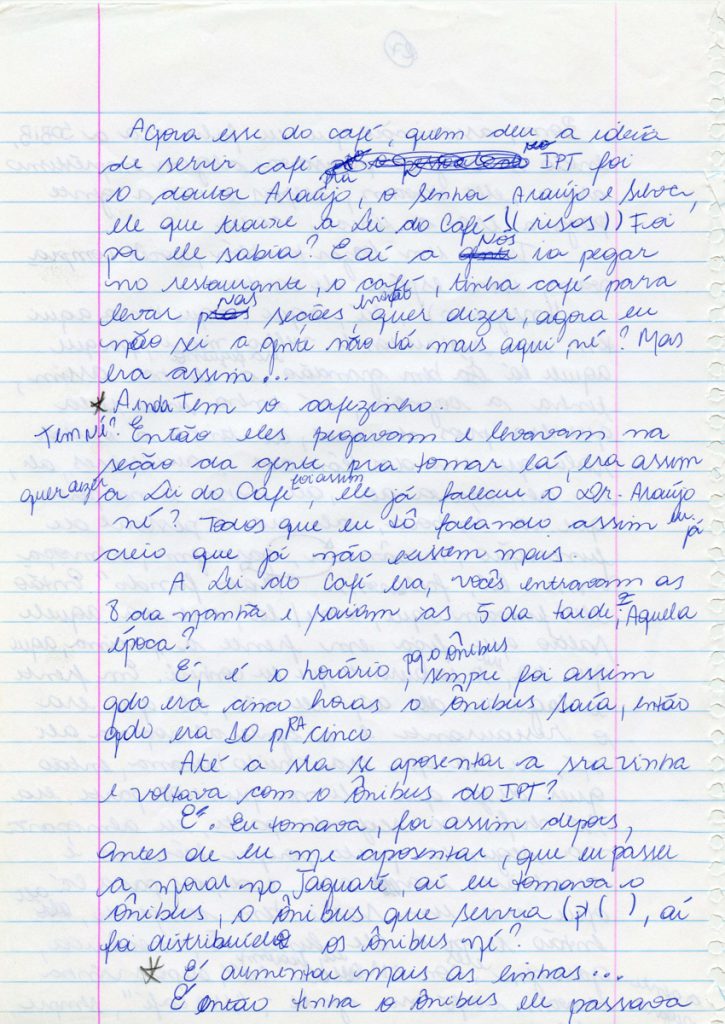 Agora esse do café, quem deu a ideia
de servir café pra no IPT foi
o doutor Araújo, o senhor Araújo e
ele que trouxe a Lei do Café! ((risos)) Foi
por ele sabia? E aí a NÓS ia pegar
no restaurante, o café, tinha café para
levar nas seções, quer dizer, agora eu
não sei a gente não tá mais aqui, né? Mas
era assim...
* Ainda Tem o cafezinho.
Tem né? Então eles pegavam e levavam na
seção da gente pra tomar lá, era assim
quer dizer a Lei do Café foi assim, ele já faleceu o Dr. Araújo
né? Todos que eu tô falando assim eu
creio que já não existem mais.
A Lei do Café era, vocês entravam as
8 da manhã e saiam às 5 da tarde? Aquela
época?
É, é o horário, pq o ônibus sempre foi assim
qdo era cinco horas o ônibus saía, então
qdo era 10 pRA cinco
Até a sra se aposentar a sra vinha
e voltava com o ônibus do IPT?
É. Eu tomava, foi assim depois,
antes de eu me aposentar, que eu passei
a morar no Jaguaré, aí eu tomava o
ônibus, o ônibus que servia (p/( ), aí
foi distribuido os ônibus né?
* É aumentar mais as linhas...
É então tinha o ônibus ele passava